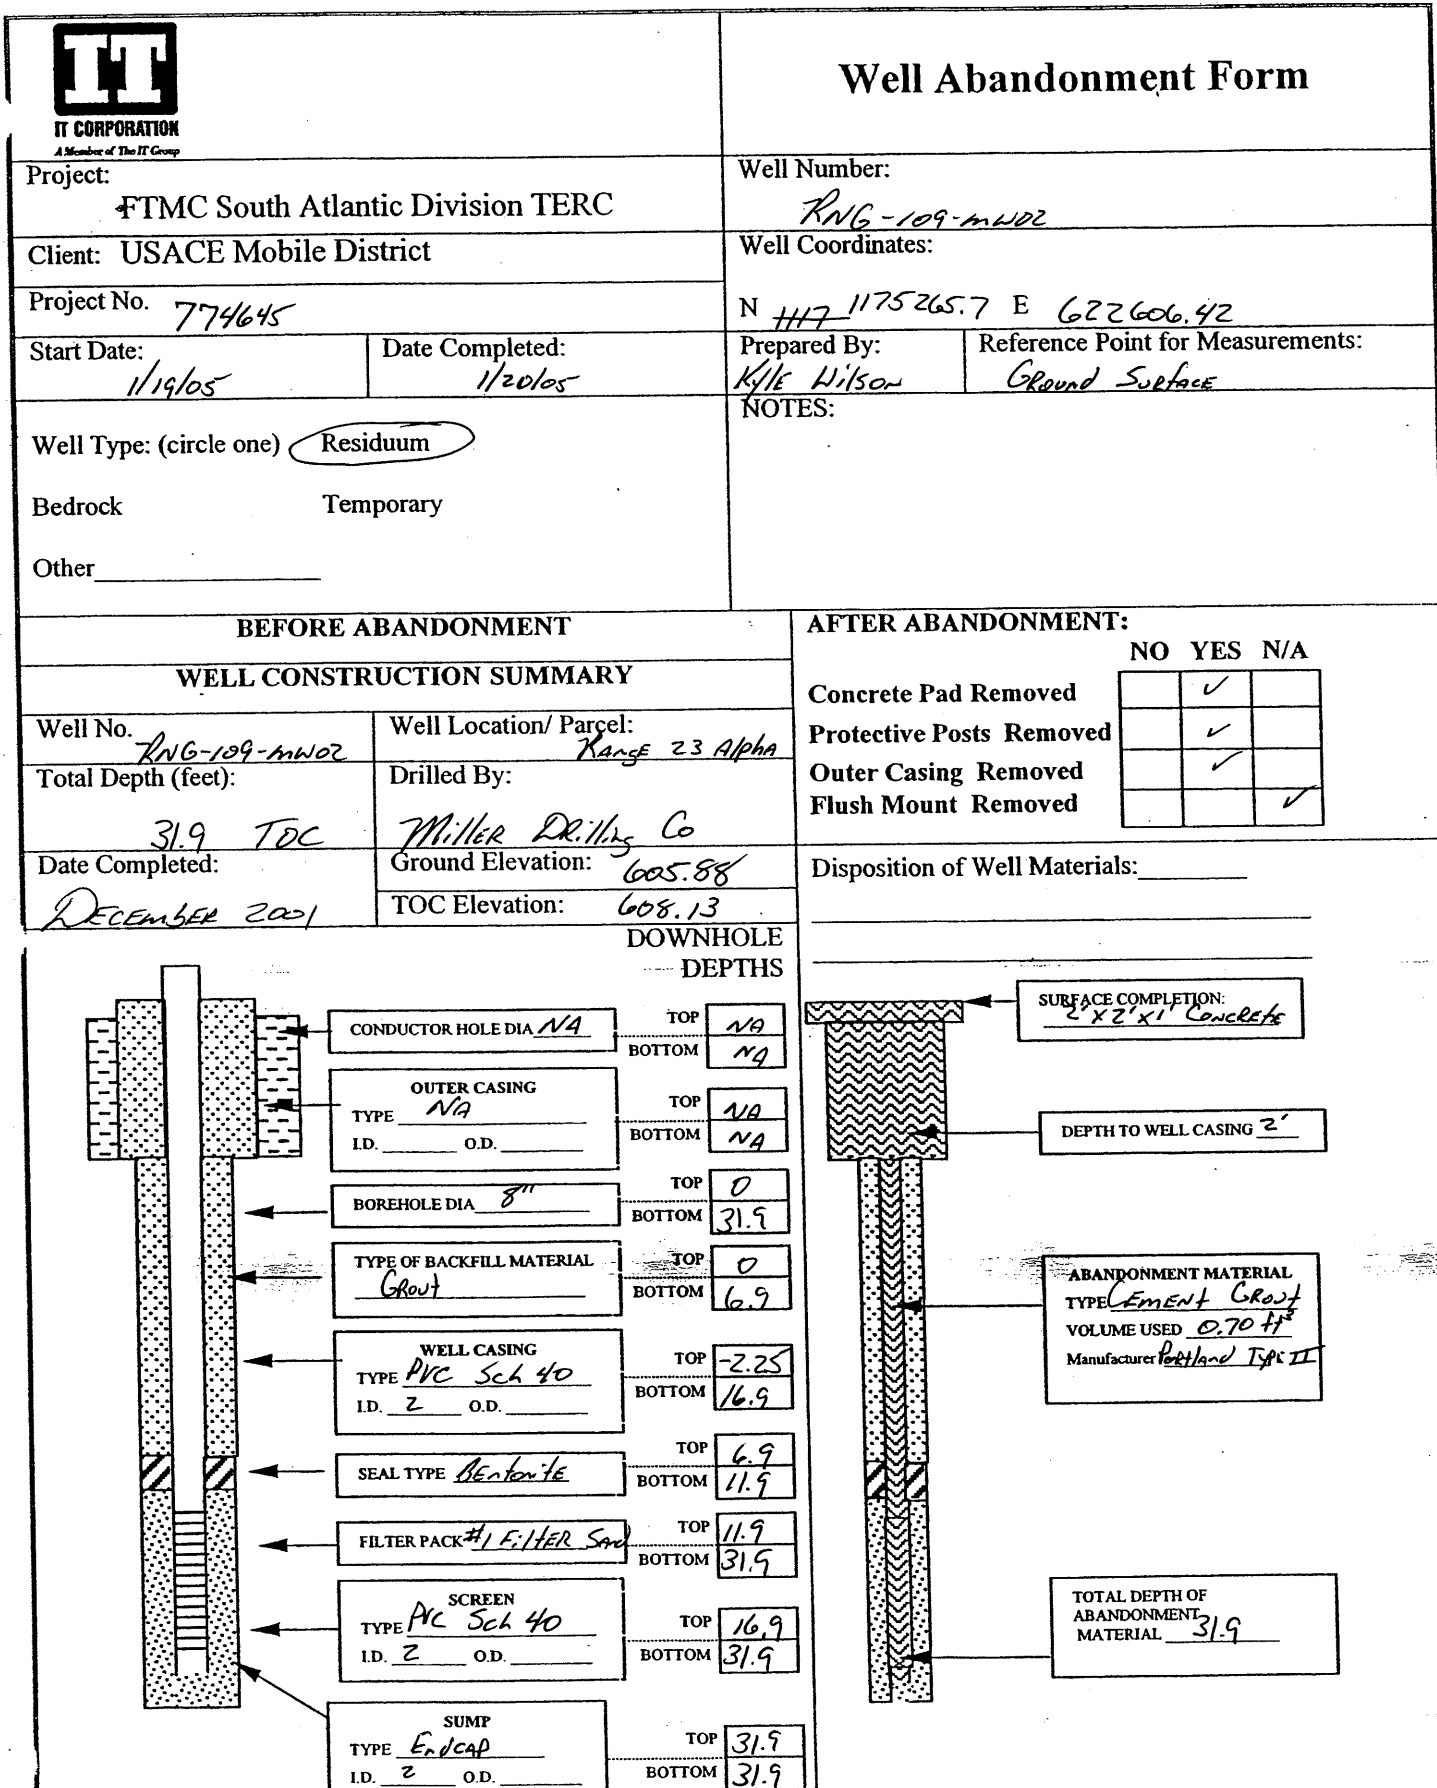 IT
IT CORPORATION
A Member of The IT Group
Well Abandonment Form
Project:
FTMC South Atlantic Division TERC
Well Number:
RNG-109-MW02
Client: USACE Mobile District
Well Coordinates:
N 1175265.7 E 622606.42
Project No. 774645
Start Date:
1/19/05
Date Completed:
1/20/05
Prepared By:
Kyle Wilson
Reference Point for Measurements:
Ground Surface
Well Type: (circle one) Residuum
Bedrock Temporary
Other
NOTES:
BEFORE ABANDONMENT
WELL CONSTRUCTION SUMMARY
Well No.
RNG-109-MW02
Well Location/ Parcel:
Range 23 Alpha
Total Depth (feet):
31.9 TOC
Drilled By:
Miller Drilling Co
Date Completed:
December 2001
Ground Elevation: 605.88
TOC Elevation: 608.13
AFTER ABANDONMENT:
NO YES N/A
Concrete Pad Removed ✓
Protective Posts Removed ✓
Outer Casing Removed ✓
Flush Mount Removed ✓
Disposition of Well Materials:
DOWNHOLE
DEPTHS
CONDUCTOR HOLE DIA NA
TOP NA
BOTTOM NA
OUTER CASING
TYPE NA
I.D. O.D.
TOP NA
BOTTOM NA
BOREHOLE DIA 8"
TOP 0
BOTTOM 31.9
TYPE OF BACKFILL MATERIAL
Grout
TOP 0
BOTTOM 6.9
WELL CASING
TYPE PVC Sch 40
I.D. 2 O.D.
TOP -2.25
BOTTOM 16.9
SEAL TYPE Bentonite
TOP 6.9
BOTTOM 11.9
FILTER PACK #1 Filter Sand
TOP 11.9
BOTTOM 31.9
SCREEN
TYPE PVC Sch 40
I.D. 2 O.D.
TOP 16.9
BOTTOM 31.9
SUMP
TYPE Endcap
I.D. 2 O.D.
TOP 31.9
BOTTOM 31.9
SURFACE COMPLETION:
2' x 2' x 1' Concrete
DEPTH TO WELL CASING 2'
ABANDONMENT MATERIAL
TYPE Cement Grout
VOLUME USED 0.70 ft³
Manufacturer Portland Type II
TOTAL DEPTH OF
ABANDONMENT
MATERIAL 31.9